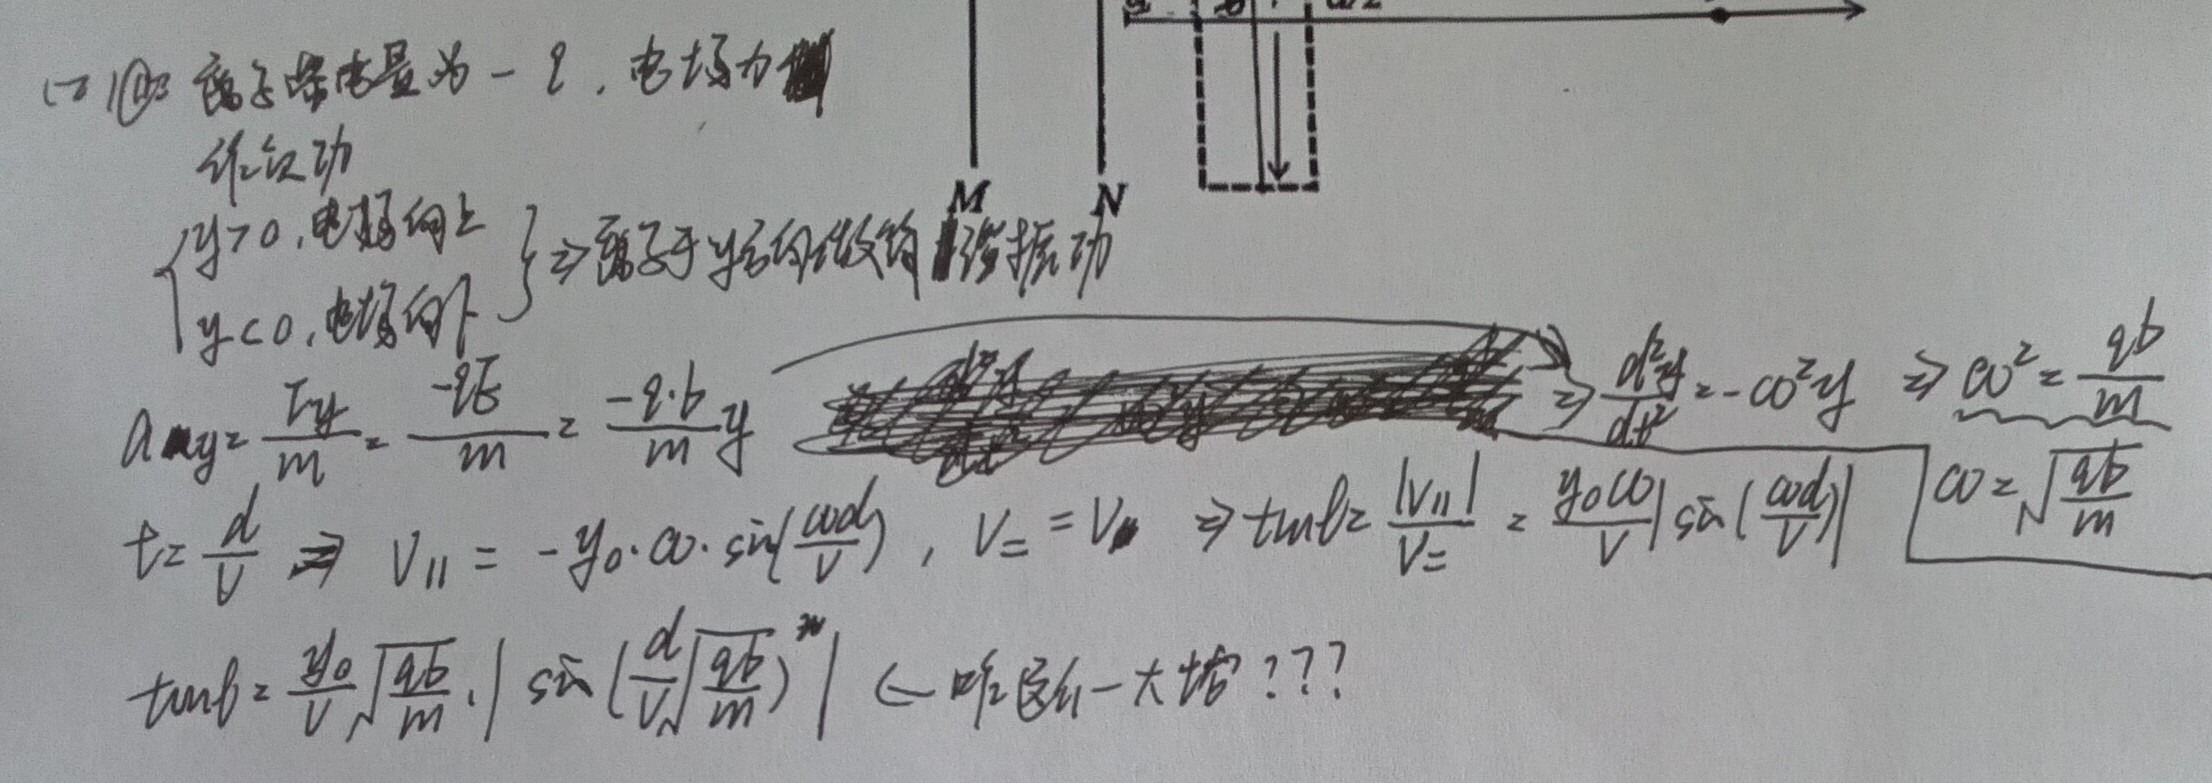 离子带电量为-q,电场力
作负功
y>0,电场向上
y<0,电场向下
⇒离子于y方向做简谐振动
M N
a_y=F_y/m=-qE/m=-q·b/m y ⇒ d²y/dt²=-ω²y ⇒ ω²=qb/m
ω=√(qb/m)
t=d/v ⇒ V_∥=-y₀·ω·sin(ωd/v), V_= =V ⇒ tanθ=|V_∥|/V_= =y₀ω/v|sin(ωd/v)|
tanθ=y₀/v √(qb/m)·|sin(d/v √(qb/m))| ← 咋这么一大堆???